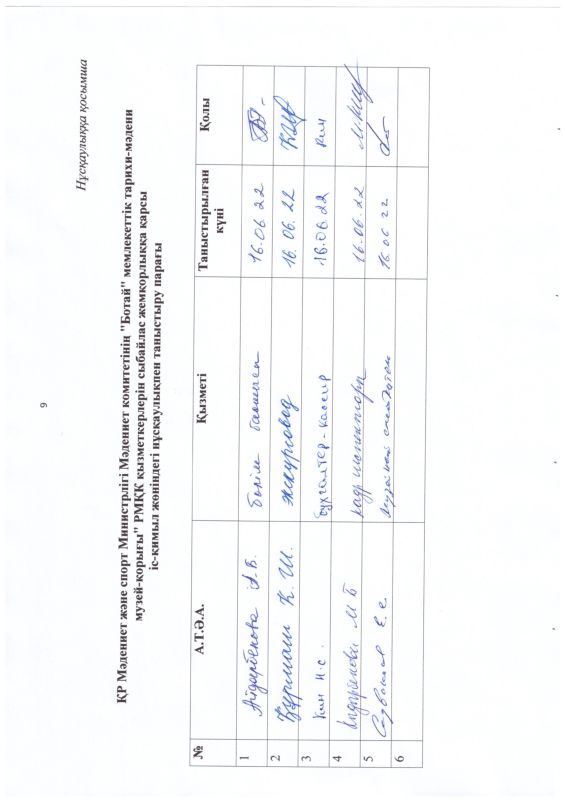 9
Нұсқаулыққа қосымша
ҚР Мәдениет және спорт Министрлігі Мәдениет комитетінің "Ботай" мемлекеттік тарихи-мәдени
музей-қорығы" РМҚК қызметкерлерін сыбайлас жемқорлыққа қарсы
іс-қимыл жөніндегі нұсқаулықпен таныстыру парағы
№ А.Т.Ә.А. Қызметі Таныстырылған күні Қолы
1 Айдарбекова А.Б. бөлім 16.06 22
2 Құрмаш К.Ш. экскурсовод 16.06.22
3 Ким Н.С. бухгалтер-кассир 16.06.22 Ким
4 М Б кадр инспекторы 16.06.22
5 Е.С. 16 06 22
6